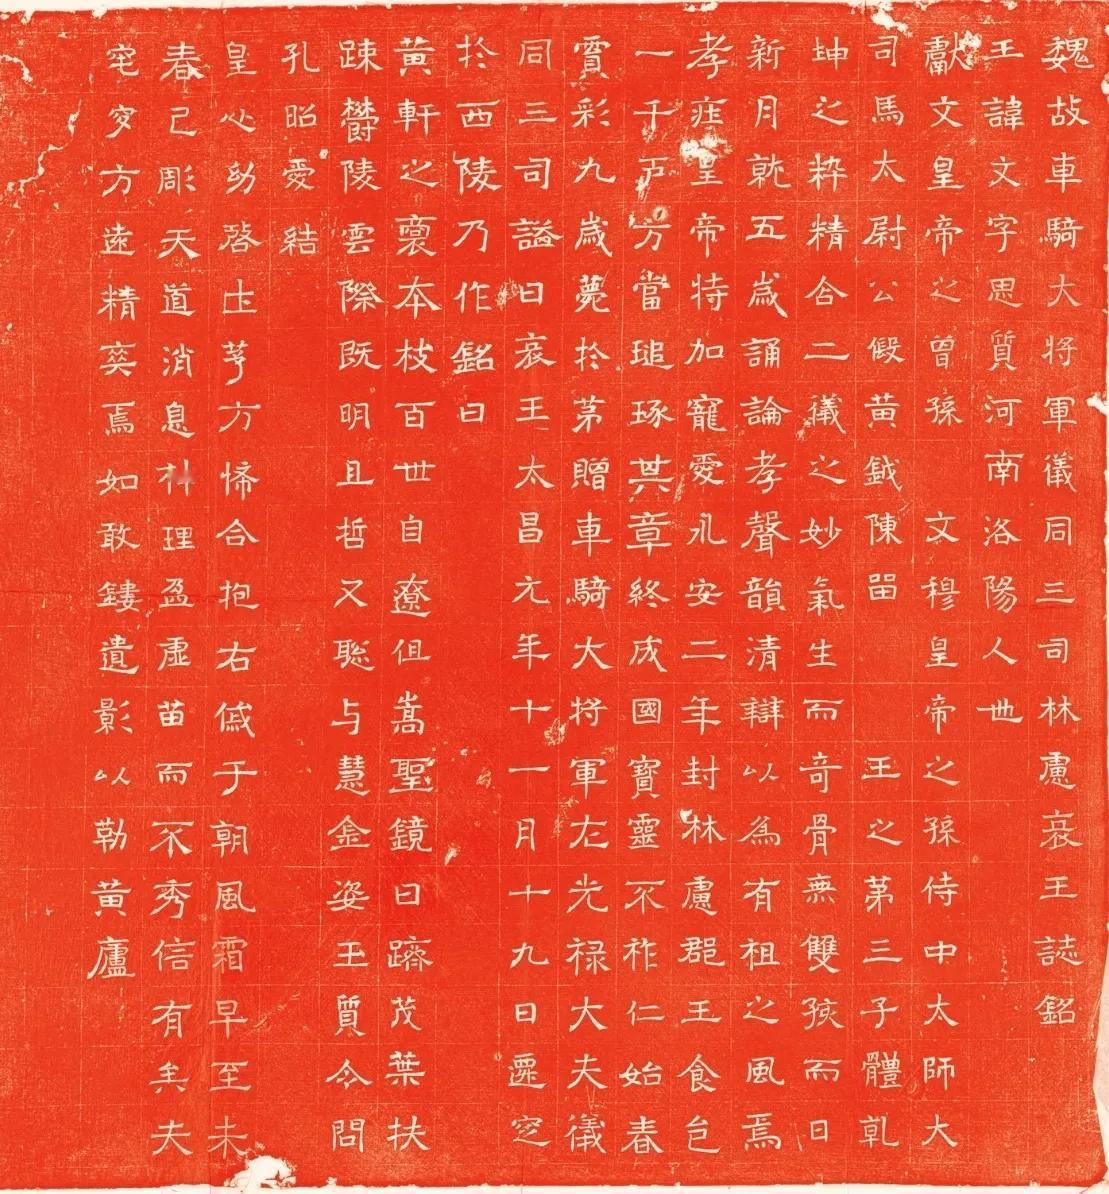 魏故車騎大將軍儀同三司林慮哀王誌銘
王諱文字思質河南洛陽人也
獻文皇帝之曾孫文穆皇帝之孫侍中太師大
司馬太尉公假黃鉞陳留王之第三子體乹
坤之粹精合二儀之妙氣生而奇骨無雙孩而日
新月就五歲誦論孝聲韻清辯以為有祖之風焉
孝莊皇帝特加寵愛永安二年封林慮郡王食邑
一千戶方當琢其章終成國寶靈不祚仁始春
賣彩九歲薨於第贈車騎大將軍左光祿大夫儀
同三司謚曰哀王太昌元年十一月十九日遷窆
於西陵乃作銘曰
黃軒之裔本枝百世自遼徂嵩聖鏡日躋茂葉扶
踈欝陵雲際既明且哲又聡与慧金姿玉質令問
孔昭愛結
皇心幼啓土茅方悕合抱右戚于朝風霜早至未
春已彫天道消息朴理盈虛苗而不秀信有矣夫
窀穸方遠精爽焉如敢鏤遺影以勒黃廬